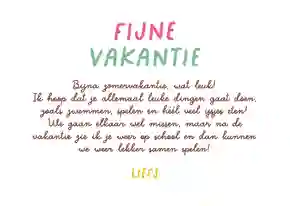 FIJNE
VAKANTIE
Bijna zomervakantie, wat leuk!
Ik hoop dat je allemaal leuke dingen gaat doen,
zoals zwemmen, spelen en héél veel ijsjes eten!
We gaan elkaar wel missen, maar na de
vakantie zie ik je weer op school en dan kunnen
we weer lekker samen spelen!